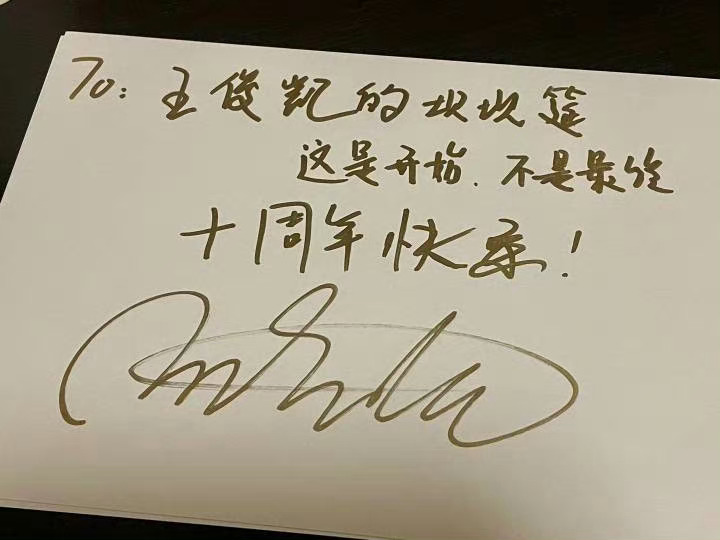 To: 王俊凯的坎坎
这是开始.不是最终
十周年快乐!